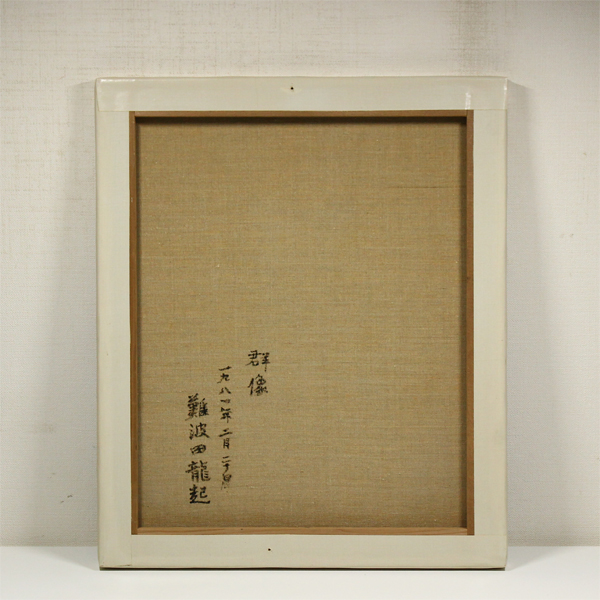 群像
一九八四年二月二十日
難波田龍起